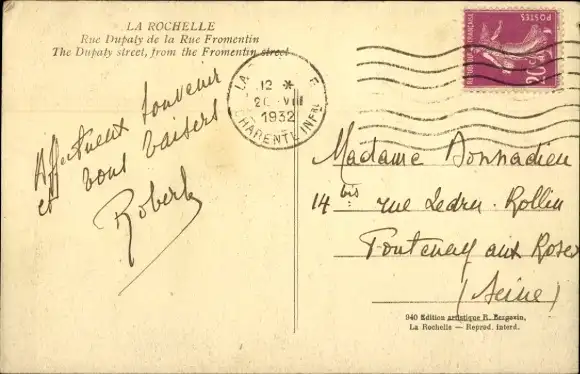 LA ROCHELLE
Rue Dupaty de la Rue Fromentin
The Dupaty street, from the Fromentin street
Affectueux souvenir
et bons baisers
Robert
LA
E
12 *
20 -VIII
1932
CHARENTE INFRE
FRANÇAISE
POSTES
20c
Madame Bonnadieu
14 bis rue Ledru-Rollin
Fontenay aux Roses
(Seine)
940 Edition artistique R. Bergevin,
La Rochelle — Reprod. interd.